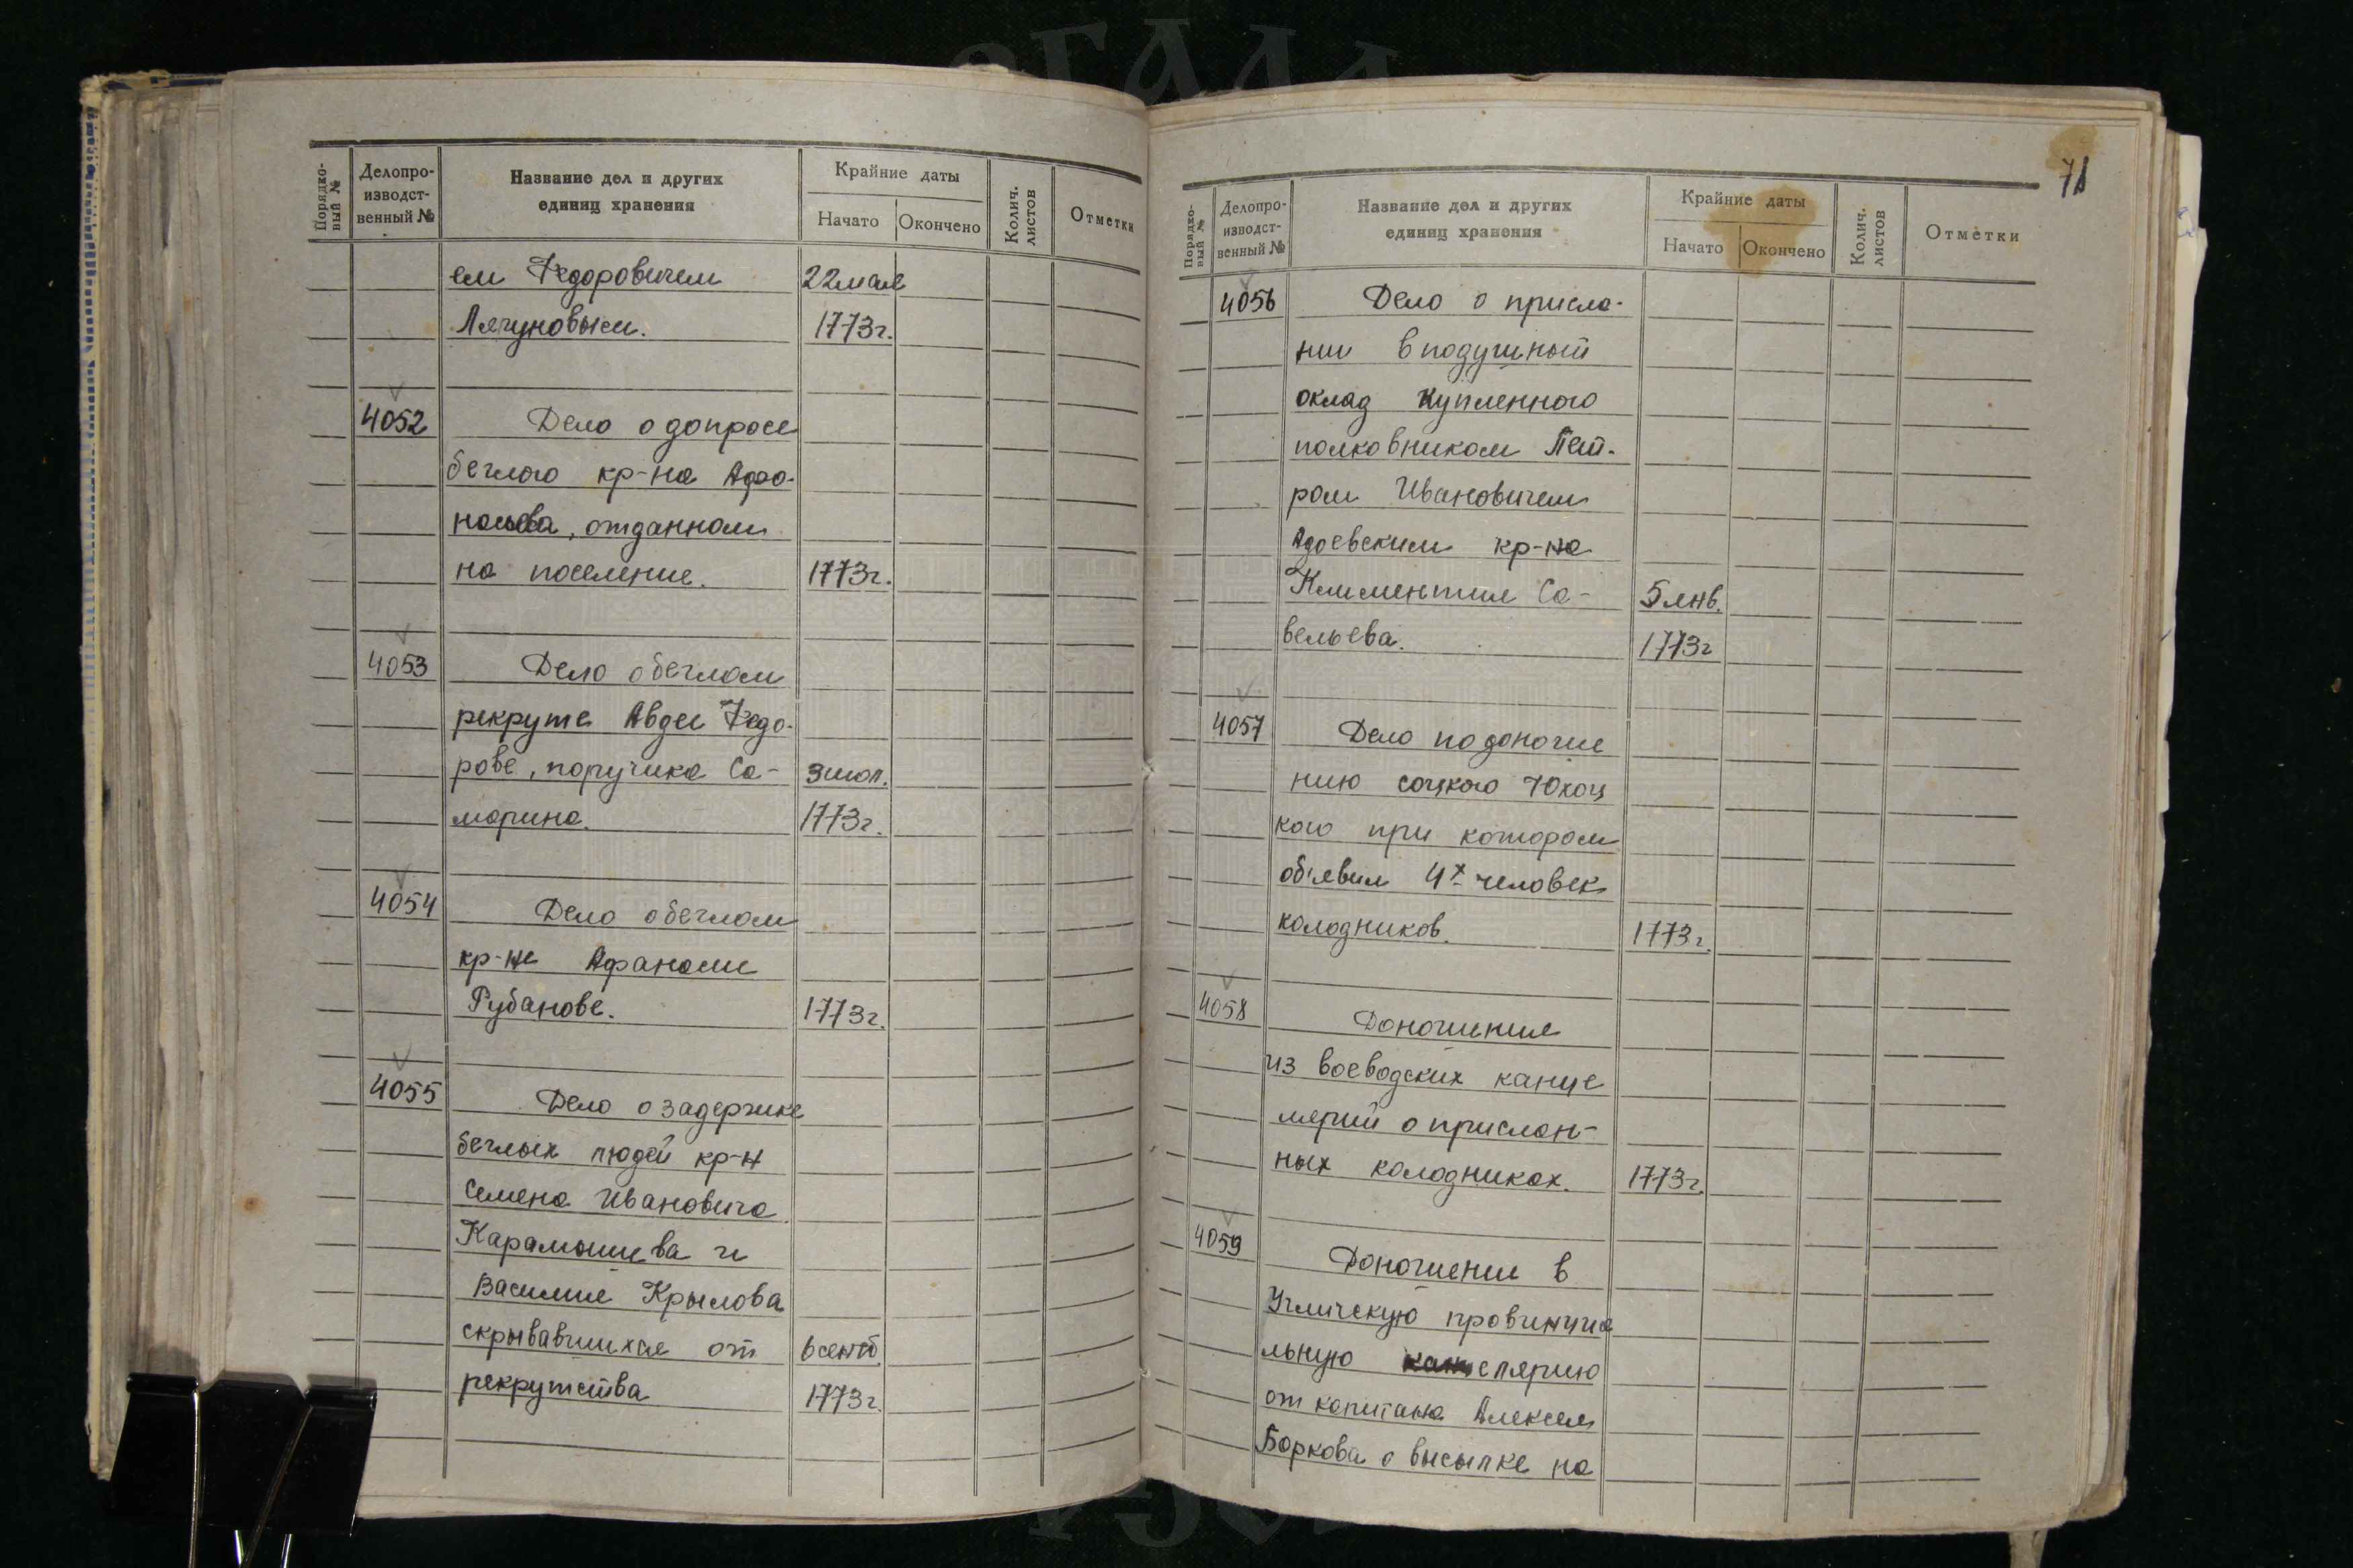 Порядко-
вый №
Делопро-
изводст-
венный №
Название дел и других
единиц хранения
Крайние даты
Начато
Окончено
Колич.
листов
Отметки
ем Федоровичем 22 мая
Лягуновым. 1773г.
4052 Дело о допросе
беглого кр-на Афа-
насьева, отданном
на поселение. 1773г.
4053 Дело о беглом
рекруте Авдее Федо-
рове, поручика Са- 3 июл.
марина. 1773г.
4054 Дело о беглом
кр-не Афанасии
Рубанове. 1773г.
4055 Дело о задержке
беглых людей кр-н
Семена Ивановича
Карамышева и
Василия Крылова
скрывавшихся от 6 сентб.
рекрутства 1773г.
71
Порядко-
вый №
Делопро-
изводст-
венный №
Название дел и других
единиц хранения
Крайние даты
Начато
Окончено
Колич.
листов
Отметки
4056 Дело о присла-
нии в подушный
оклад купленного
полковником Пет-
ром Ивановичем
Адоевским кр-на
Климентия Са- 5 янв.
вельева. 1773г
4057 Дело по доноше
нию соцкого Юхоц
кого при котором
об'явил 4х человек
колодников. 1773г.
4058 Доношения
из воеводских канце
лярий о прислан-
ных колодниках. 1773г.
4059 Доношение в
Угличскую провинциа
льную канцелярию
от капитана Алексея
Боркова о высылке на